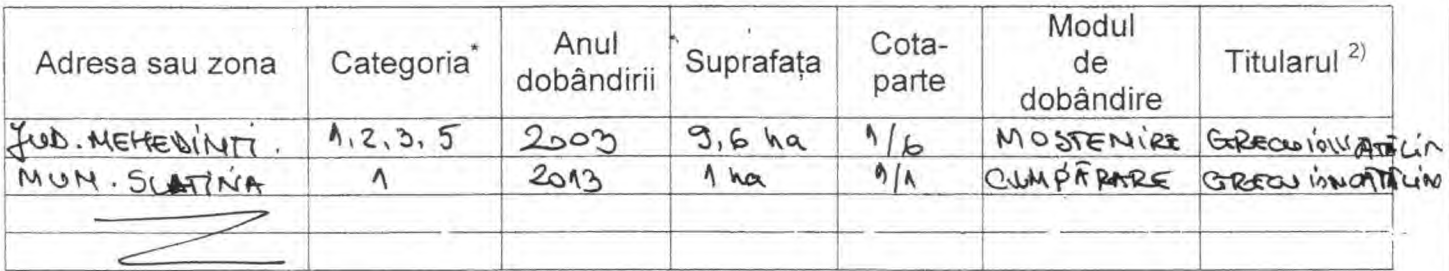 Adresa sau zona Categoria* Anul dobândirii Suprafața Cota-parte Modul de dobândire Titularul 2)
JUD. MEHEDINTI. 1,2,3,5 2003 9,6 ha 1/6 MOSTENIRE GRECU ION CĂTĂLIN
MUN. SLATINA 1 2013 1 ha 1/1 CUMPĂRARE GRECU ION CĂTĂLIN